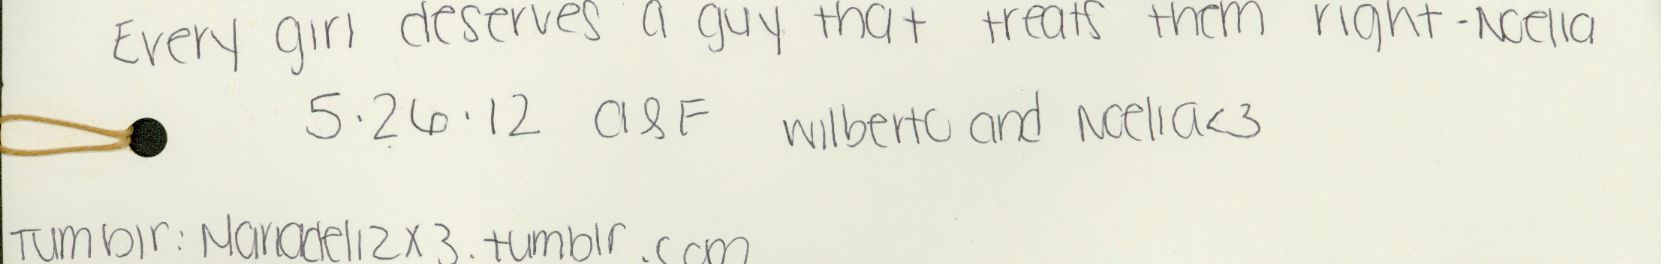 Every girl deserves a guy that treats them right -Noelia
5.26.12 a&F wilberto and Noelia<3
Tumblr: Mariadelizx3.tumblr.com